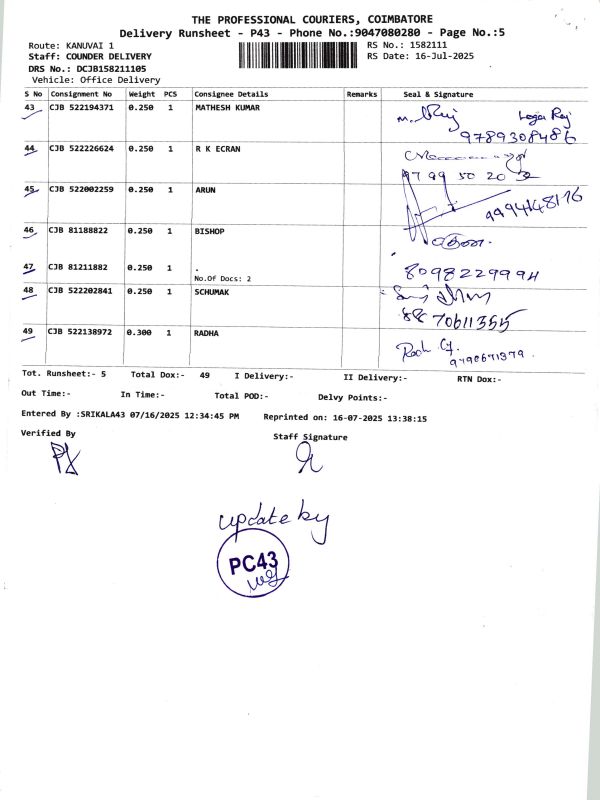 THE PROFESSIONAL COURIERS, COIMBATORE
Delivery Runsheet - P43 - Phone No.:9047080280 - Page No.:5
Route: KANUVAI 1 RS No.: 1582111
Staff: COUNDER DELIVERY RS Date: 16-Jul-2025
DRS No.: DCJB158211105
Vehicle: Office Delivery
S No Consignment No Weight PCS Consignee Details Remarks Seal & Signature
43 CJB 522194371 0.250 1 MATHESH KUMAR
9789308486
44 CJB 522226624 0.250 1 R K ECRAN
9799 50 20 32
45 CJB 522002259 0.250 1 ARUN
9994148176
46 CJB 81188822 0.250 1 BISHOP
47 CJB 81211882 0.250 1 . 8098229994
No.Of Docs: 2
48 CJB 522202841 0.250 1 SCHUMAK
49 CJB 522138972 0.300 1 RADHA
Tot. Runsheet:- 5 Total Dox:- 49 I Delivery:- II Delivery:- RTN Dox:-
Out Time:- In Time:- Total POD:- Delvy Points:-
Entered By :SRIKALA43 07/16/2025 12:34:45 PM Reprinted on: 16-07-2025 13:38:15
Verified By Staff Signature
update by
PC43